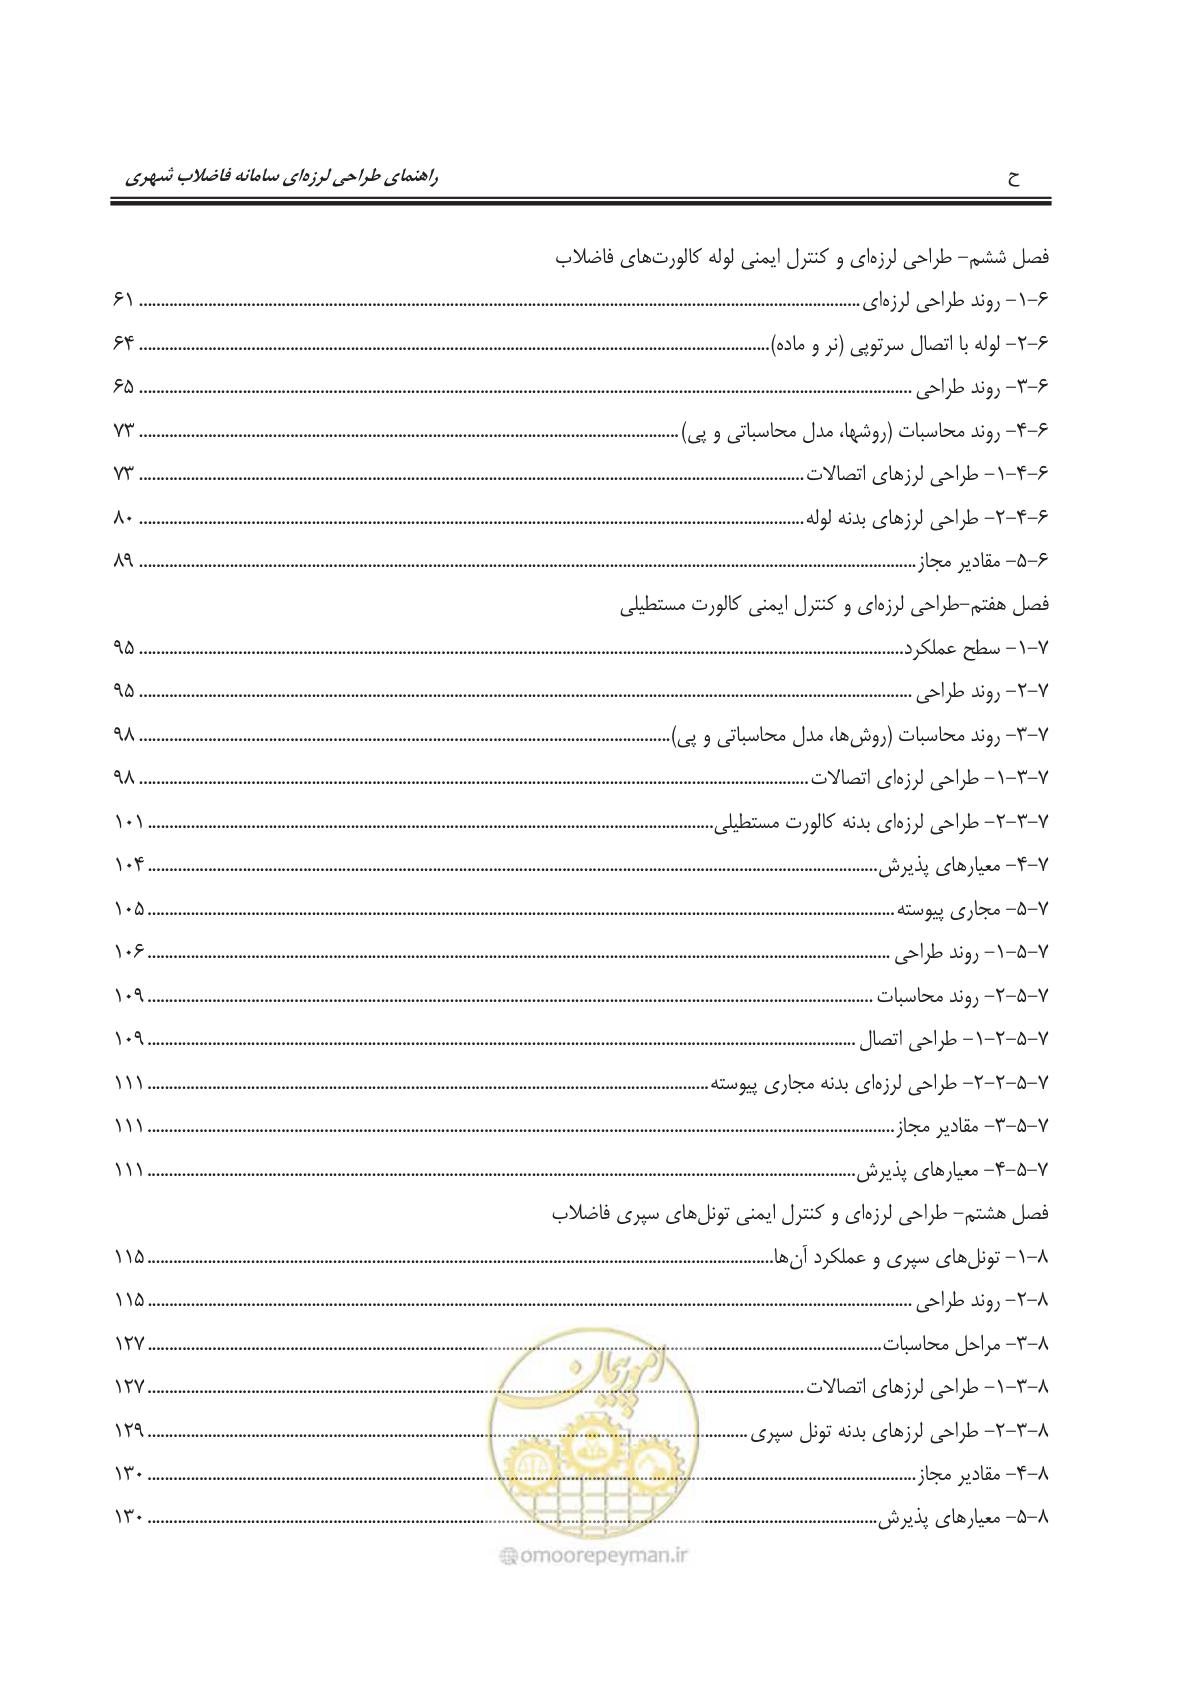 ح راهنمای طراحی لرزه‌ای سامانه فاضلاب شهری
فصل ششم- طراحی لرزه‌ای و کنترل ایمنی لوله کالورت‌های فاضلاب
۶-۱- روند طراحی لرزه‌ای ........ ۶۱
۶-۲- لوله با اتصال سرتوپی (نر و ماده) ........ ۶۴
۶-۳- روند طراحی ........ ۶۵
۶-۴- روند محاسبات (روشها، مدل محاسباتی و پی) ........ ۷۳
۶-۴-۱- طراحی لرزهای اتصالات ........ ۷۳
۶-۴-۲- طراحی لرزهای بدنه لوله ........ ۸۰
۶-۵- مقادیر مجاز ........ ۸۹
فصل هفتم-طراحی لرزه‌ای و کنترل ایمنی کالورت مستطیلی
۷-۱- سطح عملکرد ........ ۹۵
۷-۲- روند طراحی ........ ۹۵
۷-۳- روند محاسبات (روش‌ها، مدل محاسباتی و پی) ........ ۹۸
۷-۳-۱- طراحی لرزه‌ای اتصالات ........ ۹۸
۷-۳-۲- طراحی لرزه‌ای بدنه کالورت مستطیلی ........ ۱۰۱
۷-۴- معیارهای پذیرش ........ ۱۰۴
۷-۵- مجاری پیوسته ........ ۱۰۵
۷-۵-۱- روند طراحی ........ ۱۰۶
۷-۵-۲- روند محاسبات ........ ۱۰۹
۷-۵-۲-۱- طراحی اتصال ........ ۱۰۹
۷-۵-۲-۲- طراحی لرزه‌ای بدنه مجاری پیوسته ........ ۱۱۱
۷-۵-۳- مقادیر مجاز ........ ۱۱۱
۷-۵-۴- معیارهای پذیرش ........ ۱۱۱
فصل هشتم- طراحی لرزه‌ای و کنترل ایمنی تونل‌های سپری فاضلاب
۸-۱- تونل‌های سپری و عملکرد آن‌ها ........ ۱۱۵
۸-۲- روند طراحی ........ ۱۱۵
۸-۳- مراحل محاسبات ........ ۱۲۷
۸-۳-۱- طراحی لرزهای اتصالات ........ ۱۲۷
۸-۳-۲- طراحی لرزهای بدنه تونل سپری ........ ۱۲۹
۸-۴- مقادیر مجاز ........ ۱۳۰
۸-۵- معیارهای پذیرش ........ ۱۳۰
امور پیمان
@omoorepeyman.ir